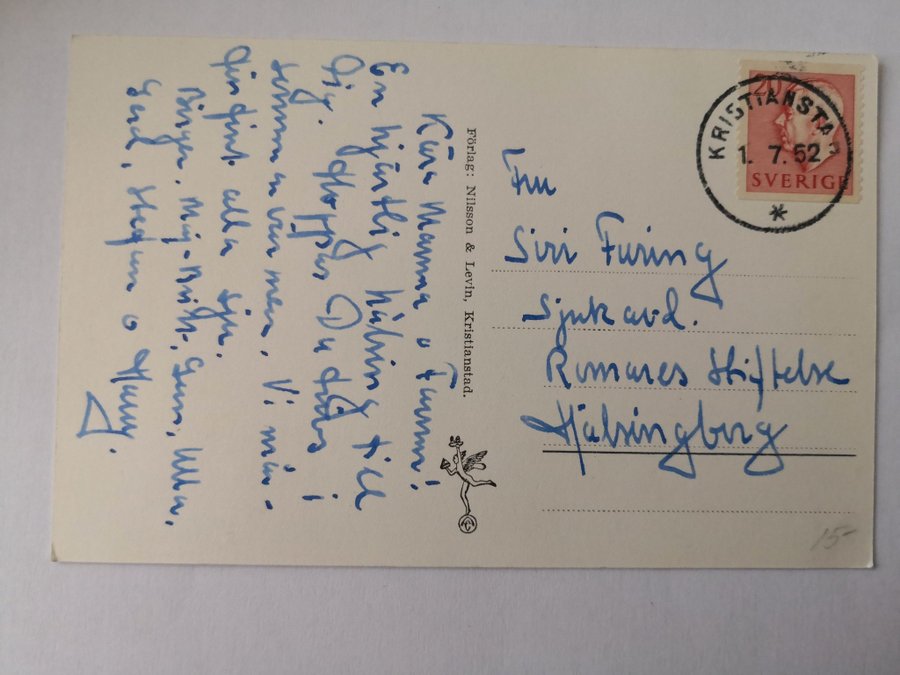 Kära Mamma o Farmor!
En hjärtlig hälsning till
Dig. Hoppas Du har det i
sommarvärmen. Vi mår
fint alla sju.
Birger, Maj-Britt, Gun, Ulla,
Gerd, Stefan o
Förlag: Nilsson & Levin, Kristianstad.
20
KRISTIANSTAD
1. 7. 52
SVERIGE
Fru
Siri Furing
Sjukavd.
Romares Stiftelse
Hälsingborg
15-